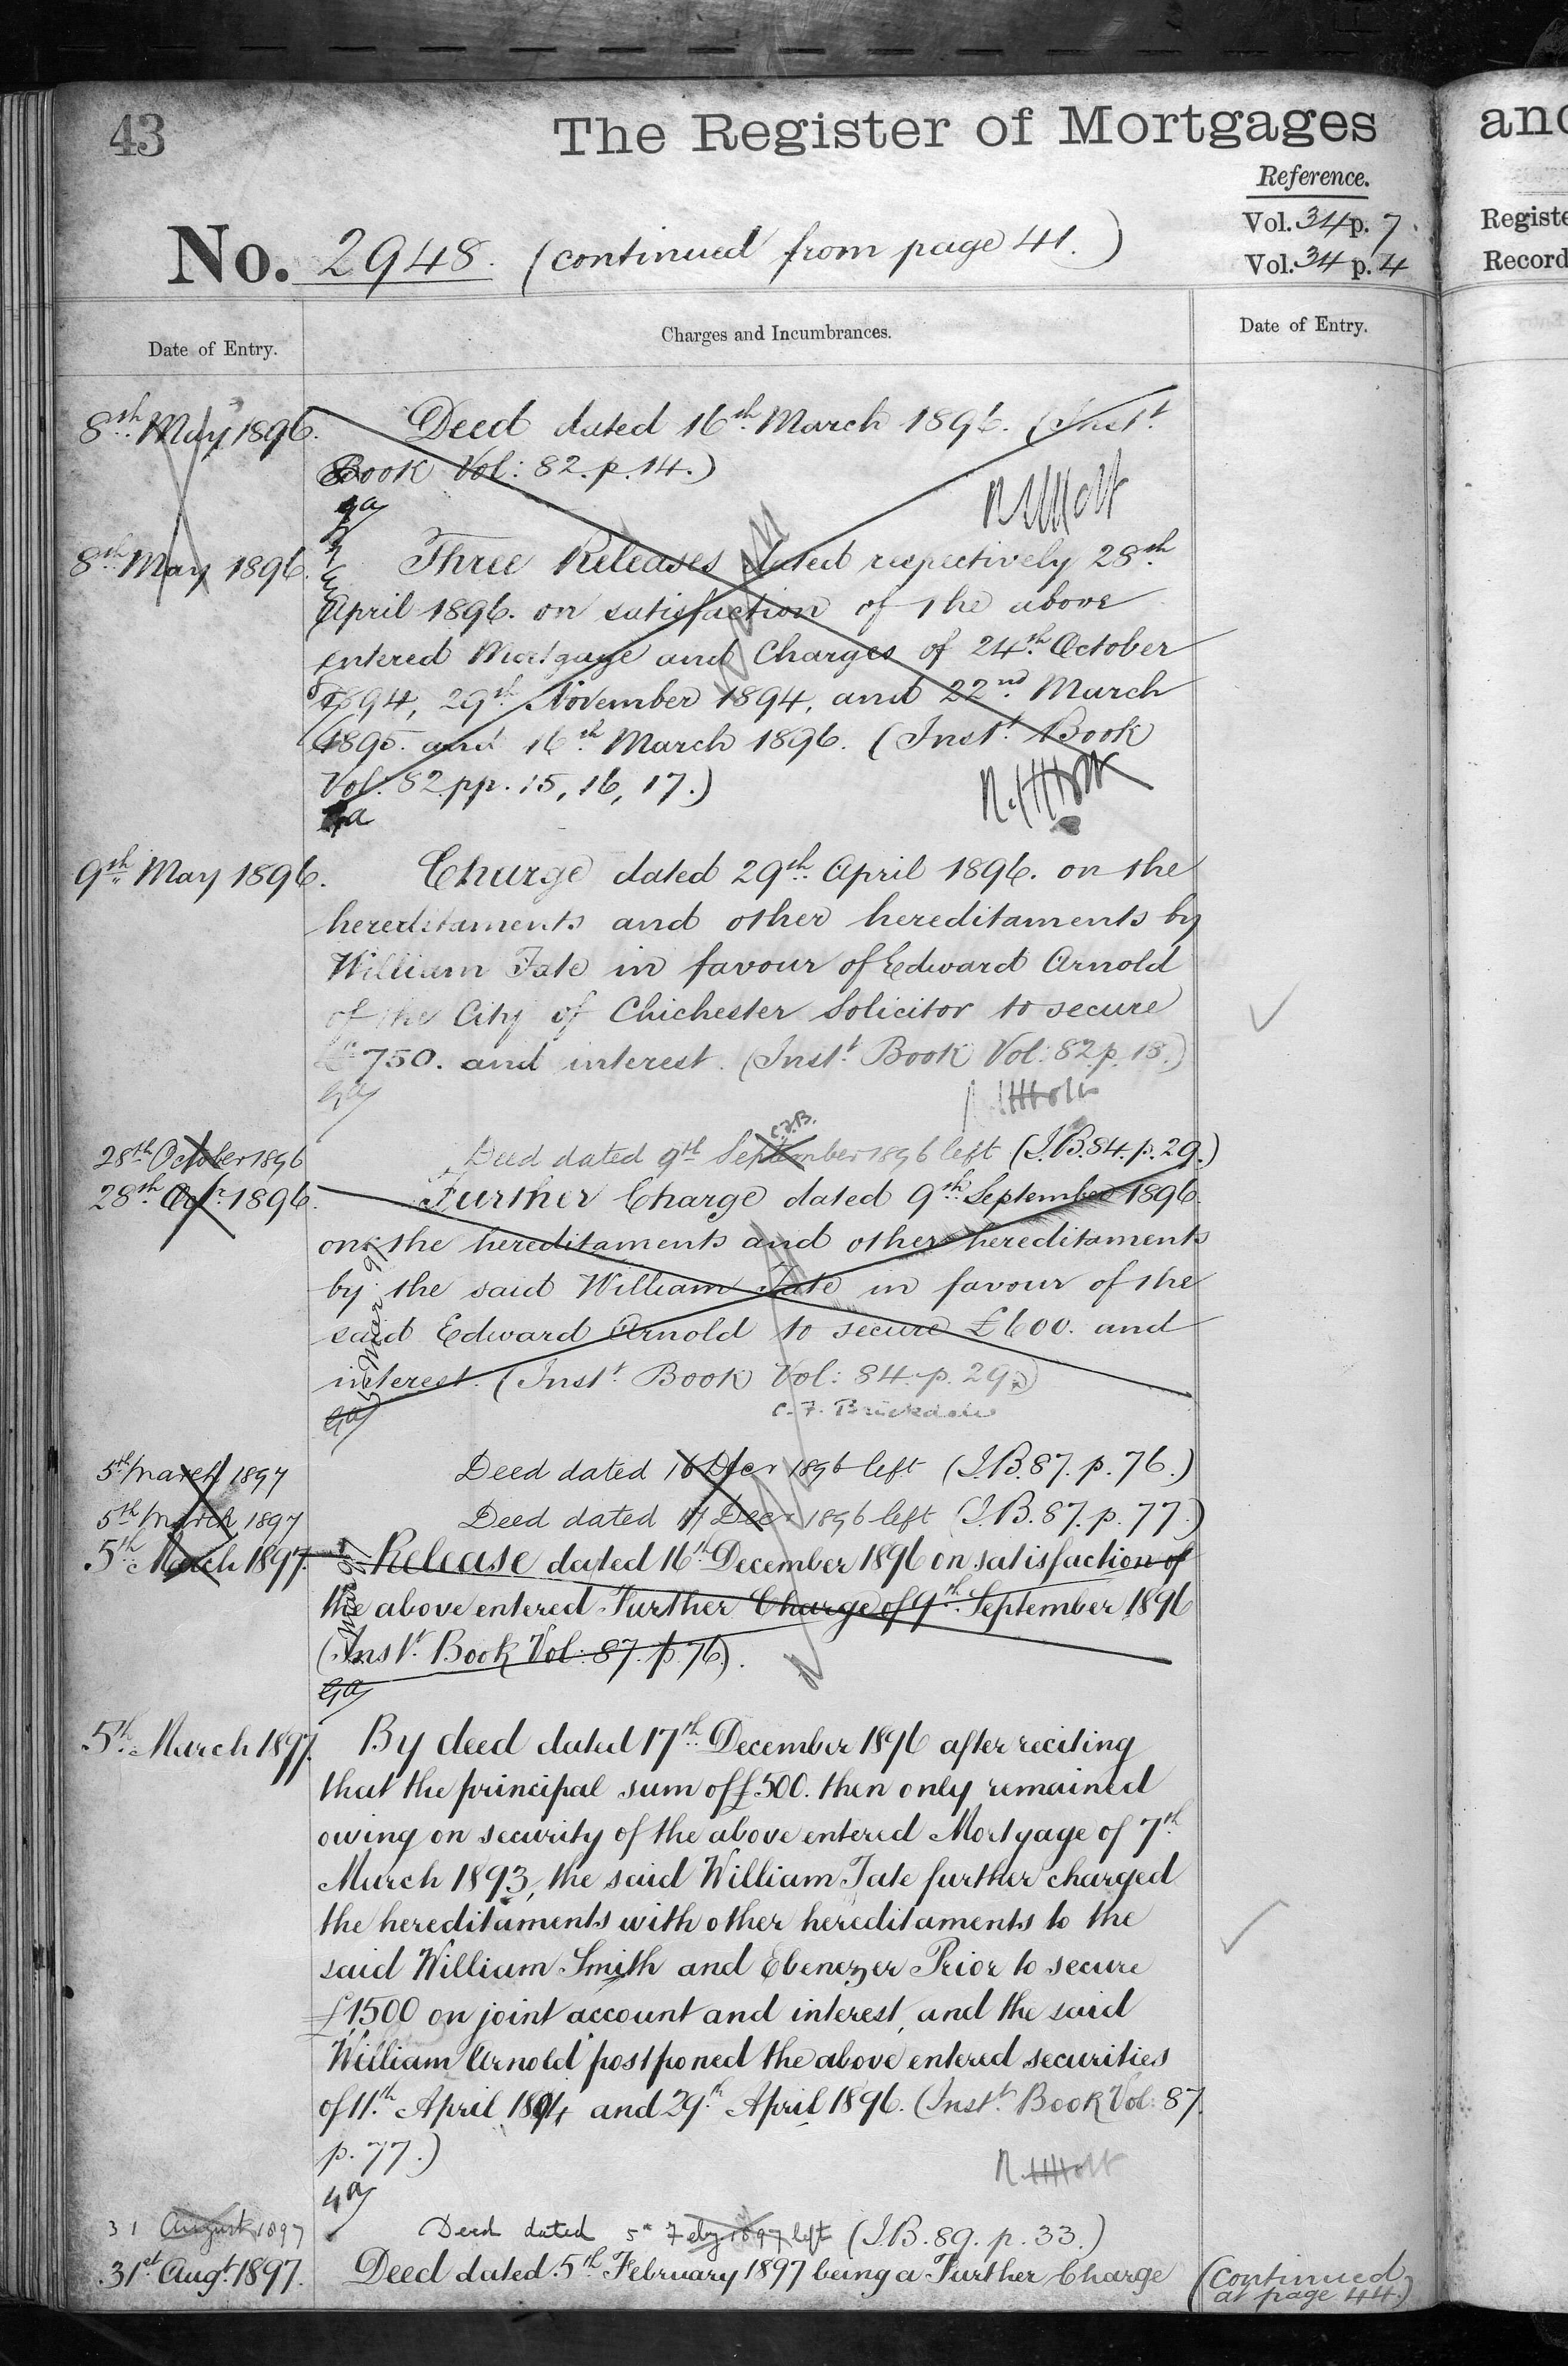 43
The Register of Mortgages
and
Reference.
No. 2948. (continued from page 41.)
Vol. 34 p. 7.
Vol. 34 p. 4
Registe
Record
Date of Entry.
Charges and Incumbrances.
Date of Entry.
8th May 1896. Deed dated 16th March 1896. (Inst.
Book Vol: 82. p. 14.)
8th May 1896. Three Releases dated respectively 28th
April 1896. on satisfaction of the above
entered Mortgage and Charges of 24th October
1894, 29th November 1894, and 22nd March
1895. and 16th March 1896. (Inst. Book
Vol: 82. pp. 15, 16, 17.)
9th May 1896. Charge dated 29th April 1896. on the
hereditaments and other hereditaments by
William Tate in favour of Edward Arnold
of the City of Chichester Solicitor to secure
£750. and interest. (Inst. Book Vol: 82 p. 18.)
C.F.B.
28th October 1896 Deed dated 9th September 1896 left (I.B. 84. p. 29.)
28th Octr. 1896. Further Charge dated 9th September 1896.
on the hereditaments and other hereditaments
by the said William Tate in favour of the
said Edward Arnold to secure £600. and
interest. (Inst. Book Vol: 84. p. 29.)
C. F. Brickdale
5th March 1897 Deed dated 16 Decr 1896 left (I.B. 87. p. 76.)
5th March 1897 Deed dated 17 Decr 1896 left (I.B. 87. p. 77.)
5th March 1897. Release dated 16th December 1896 on satisfaction of
the above entered Further Charge of 9th September 1896
(Inst. Book Vol: 87. p. 76).
5th March 1897. By deed dated 17th December 1896 after reciting
that the principal sum of £500. then only remained
owing on security of the above entered Mortgage of 7th
March 1893, the said William Tate further charged
the hereditaments with other hereditaments to the
said William Smith and Ebenezer Prior to secure
£1500 on joint account and interest, and the said
William Arnold postponed the above entered securities
of 11th April 1894 and 29th April 1896. (Inst. Book Vol: 87.
p. 77.)
31 August 1897 Deed dated 5th Feby 1897 left (I.B. 89. p. 33.)
31st Augt. 1897. Deed dated 5th February 1897 being a Further Charge
(Continued
at page 44.)